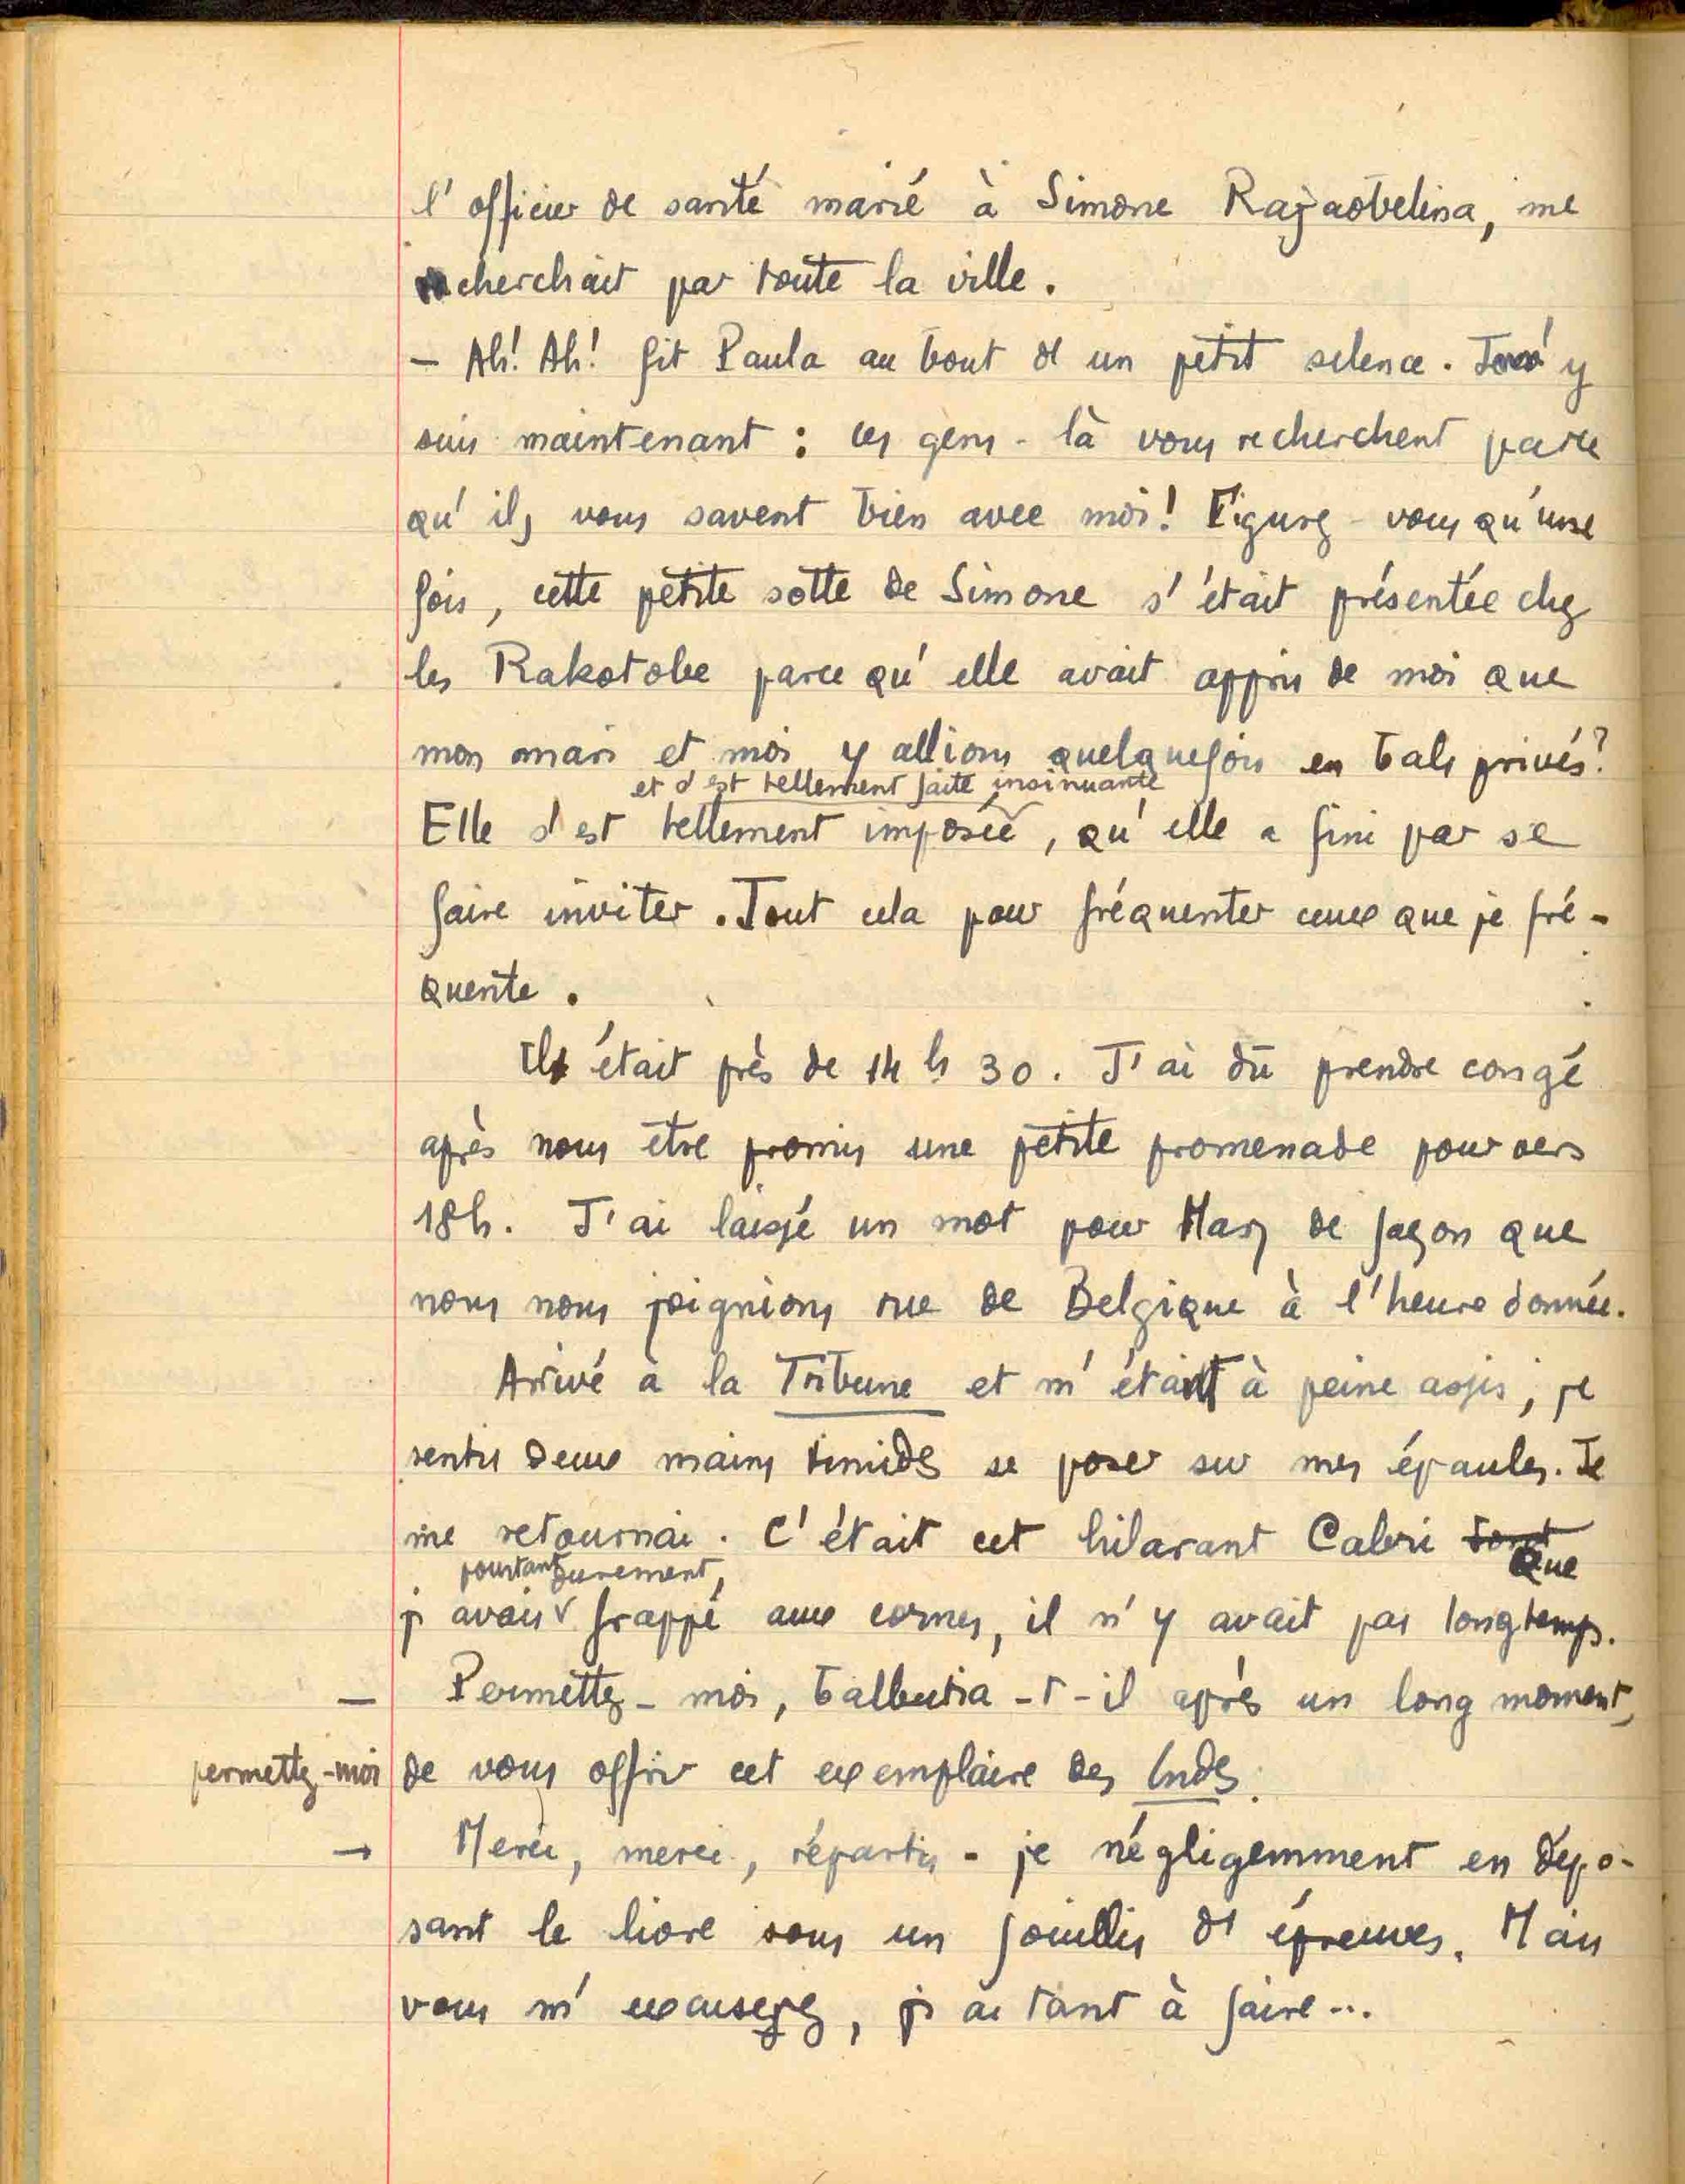 l'officier de santé marié à Simone Rajaobelina, me
cherchait par toute la ville.
– Ah! Ah! fit Paula au bout d'un petit silence. J'y
suis maintenant : ces gens-là vous recherchent parce
qu'ils vous savent bien avec moi! Figurez-vous qu'une
fois, cette petite sotte de Simone s'était présentée chez
les Rakotobe parce qu'elle avait appris de moi que
mon mari et moi y allions quelquefois en bals privés?
et s'est tellement faite insinuante
Elle s'est tellement imposée, qu'elle a fini par se
faire inviter. Tout cela pour fréquenter ceux que je fré-
quente.
Il était près de 14 h 30. J'ai dû prendre congé
après nous être promis une petite promenade pour vers
18h. J'ai laissé un mot pour de façon que
nous nous joignions rue de Belgique à l'heure donnée.
Arrivé à la Tribune et m'étant à peine assis, je
sentis deux mains timides se poser sur mes épaules. Je
me retournai. C'était cet hilarant Cabri
que
pourtant durement,
j'avais frappé aux cornes, il n'y avait pas longtemps.
— Permettez-moi, balbutia-t-il après un long moment,
permettez-moi de vous offrir cet exemplaire des Indes.
– Merci, merci, répartis-je négligemment en dépo-
sant le livre sous un fouillis d'épreuves. Mais
vous m'excuserez, j'ai tant à faire...